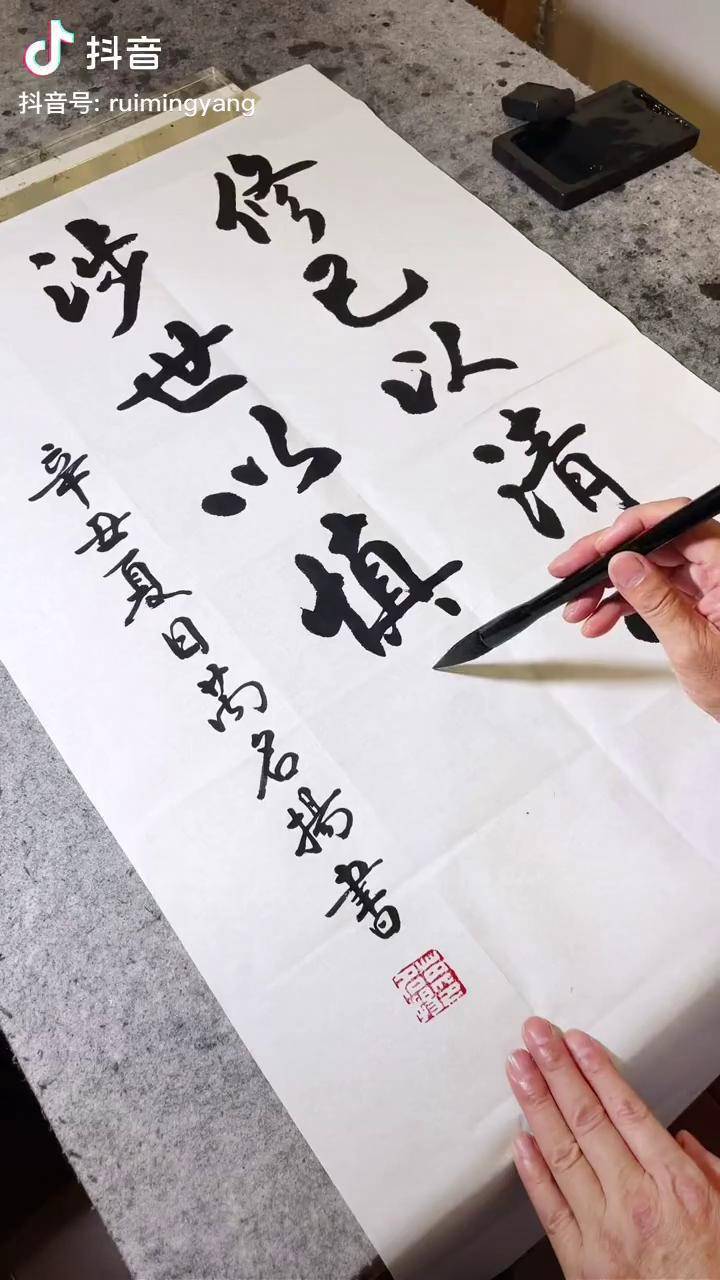 抖音
抖音号: ruimingyang
修己以清
涉世以慎
辛丑夏日萬名揚書